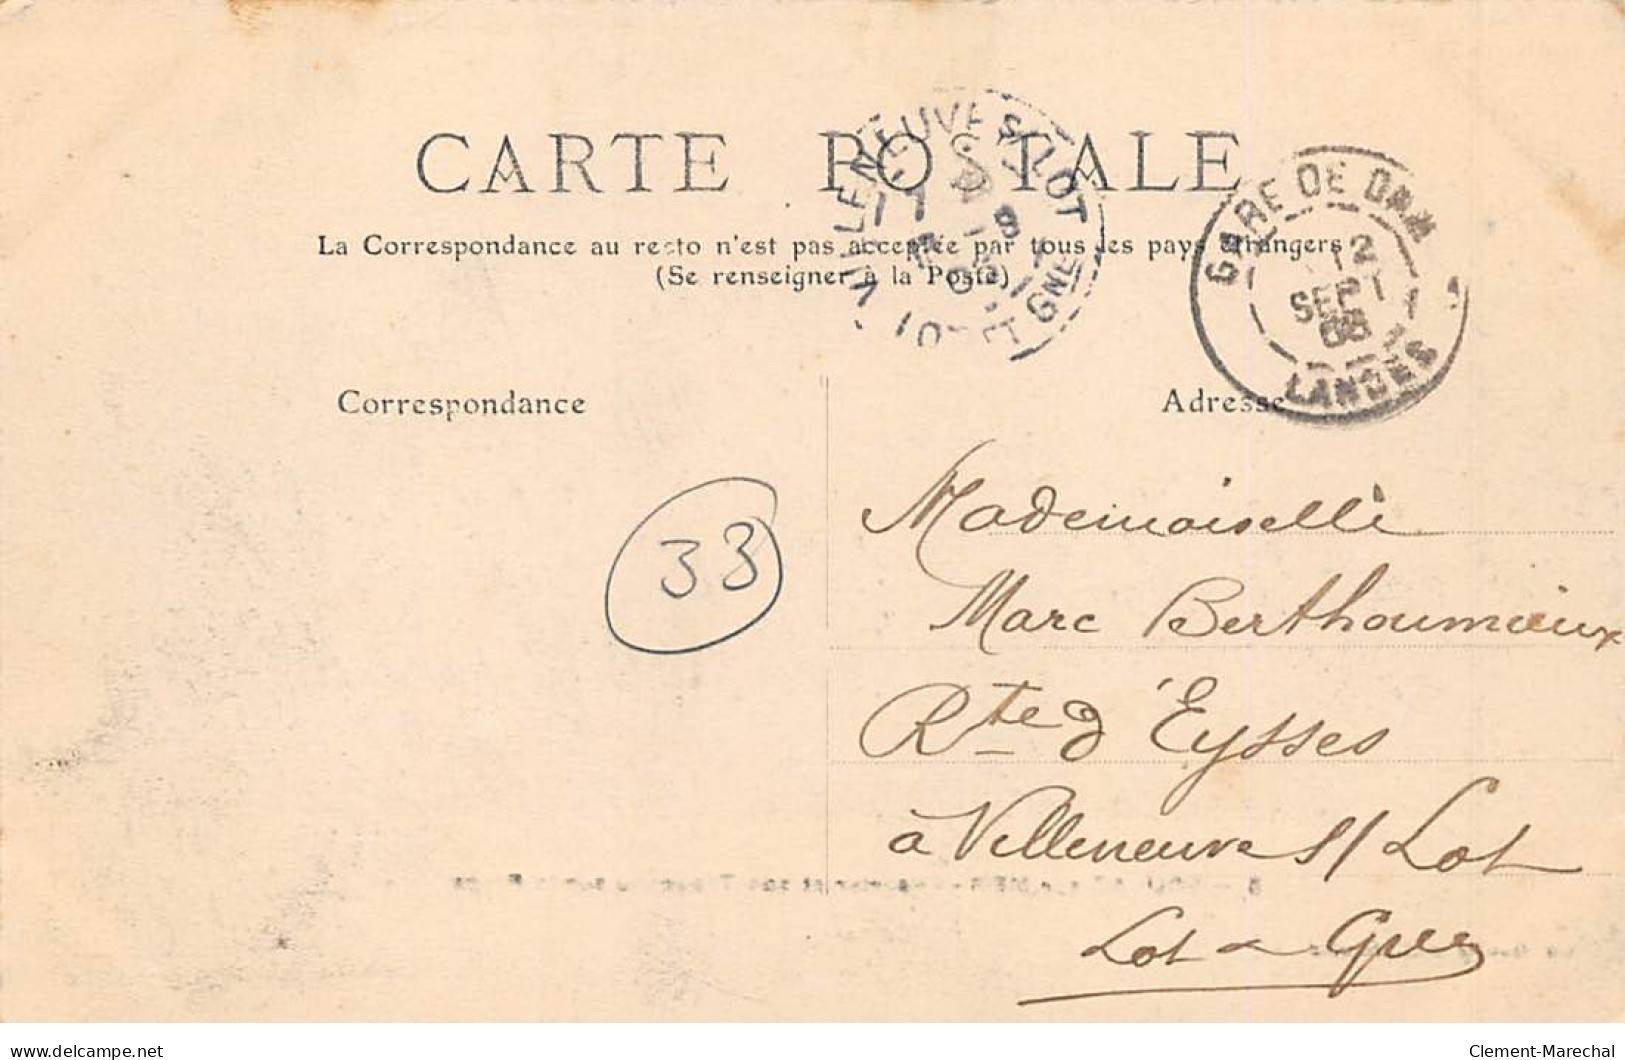 CARTE POSTALE
La Correspondance au recto n'est pas acceptée par tous les pays étrangers
(Se renseigner à la Poste)
VILLENEUVE S/ LOT
LOT ET GNE
GARE DE DAX
12
SEPT
LANDES
Correspondance
Adresse
33
Mademoiselle
Marc Berthoumieux
Rte d'Eysses
à Villeneuve s/ Lot
Lot & Gne
delcampe.net
Clement-Marechal